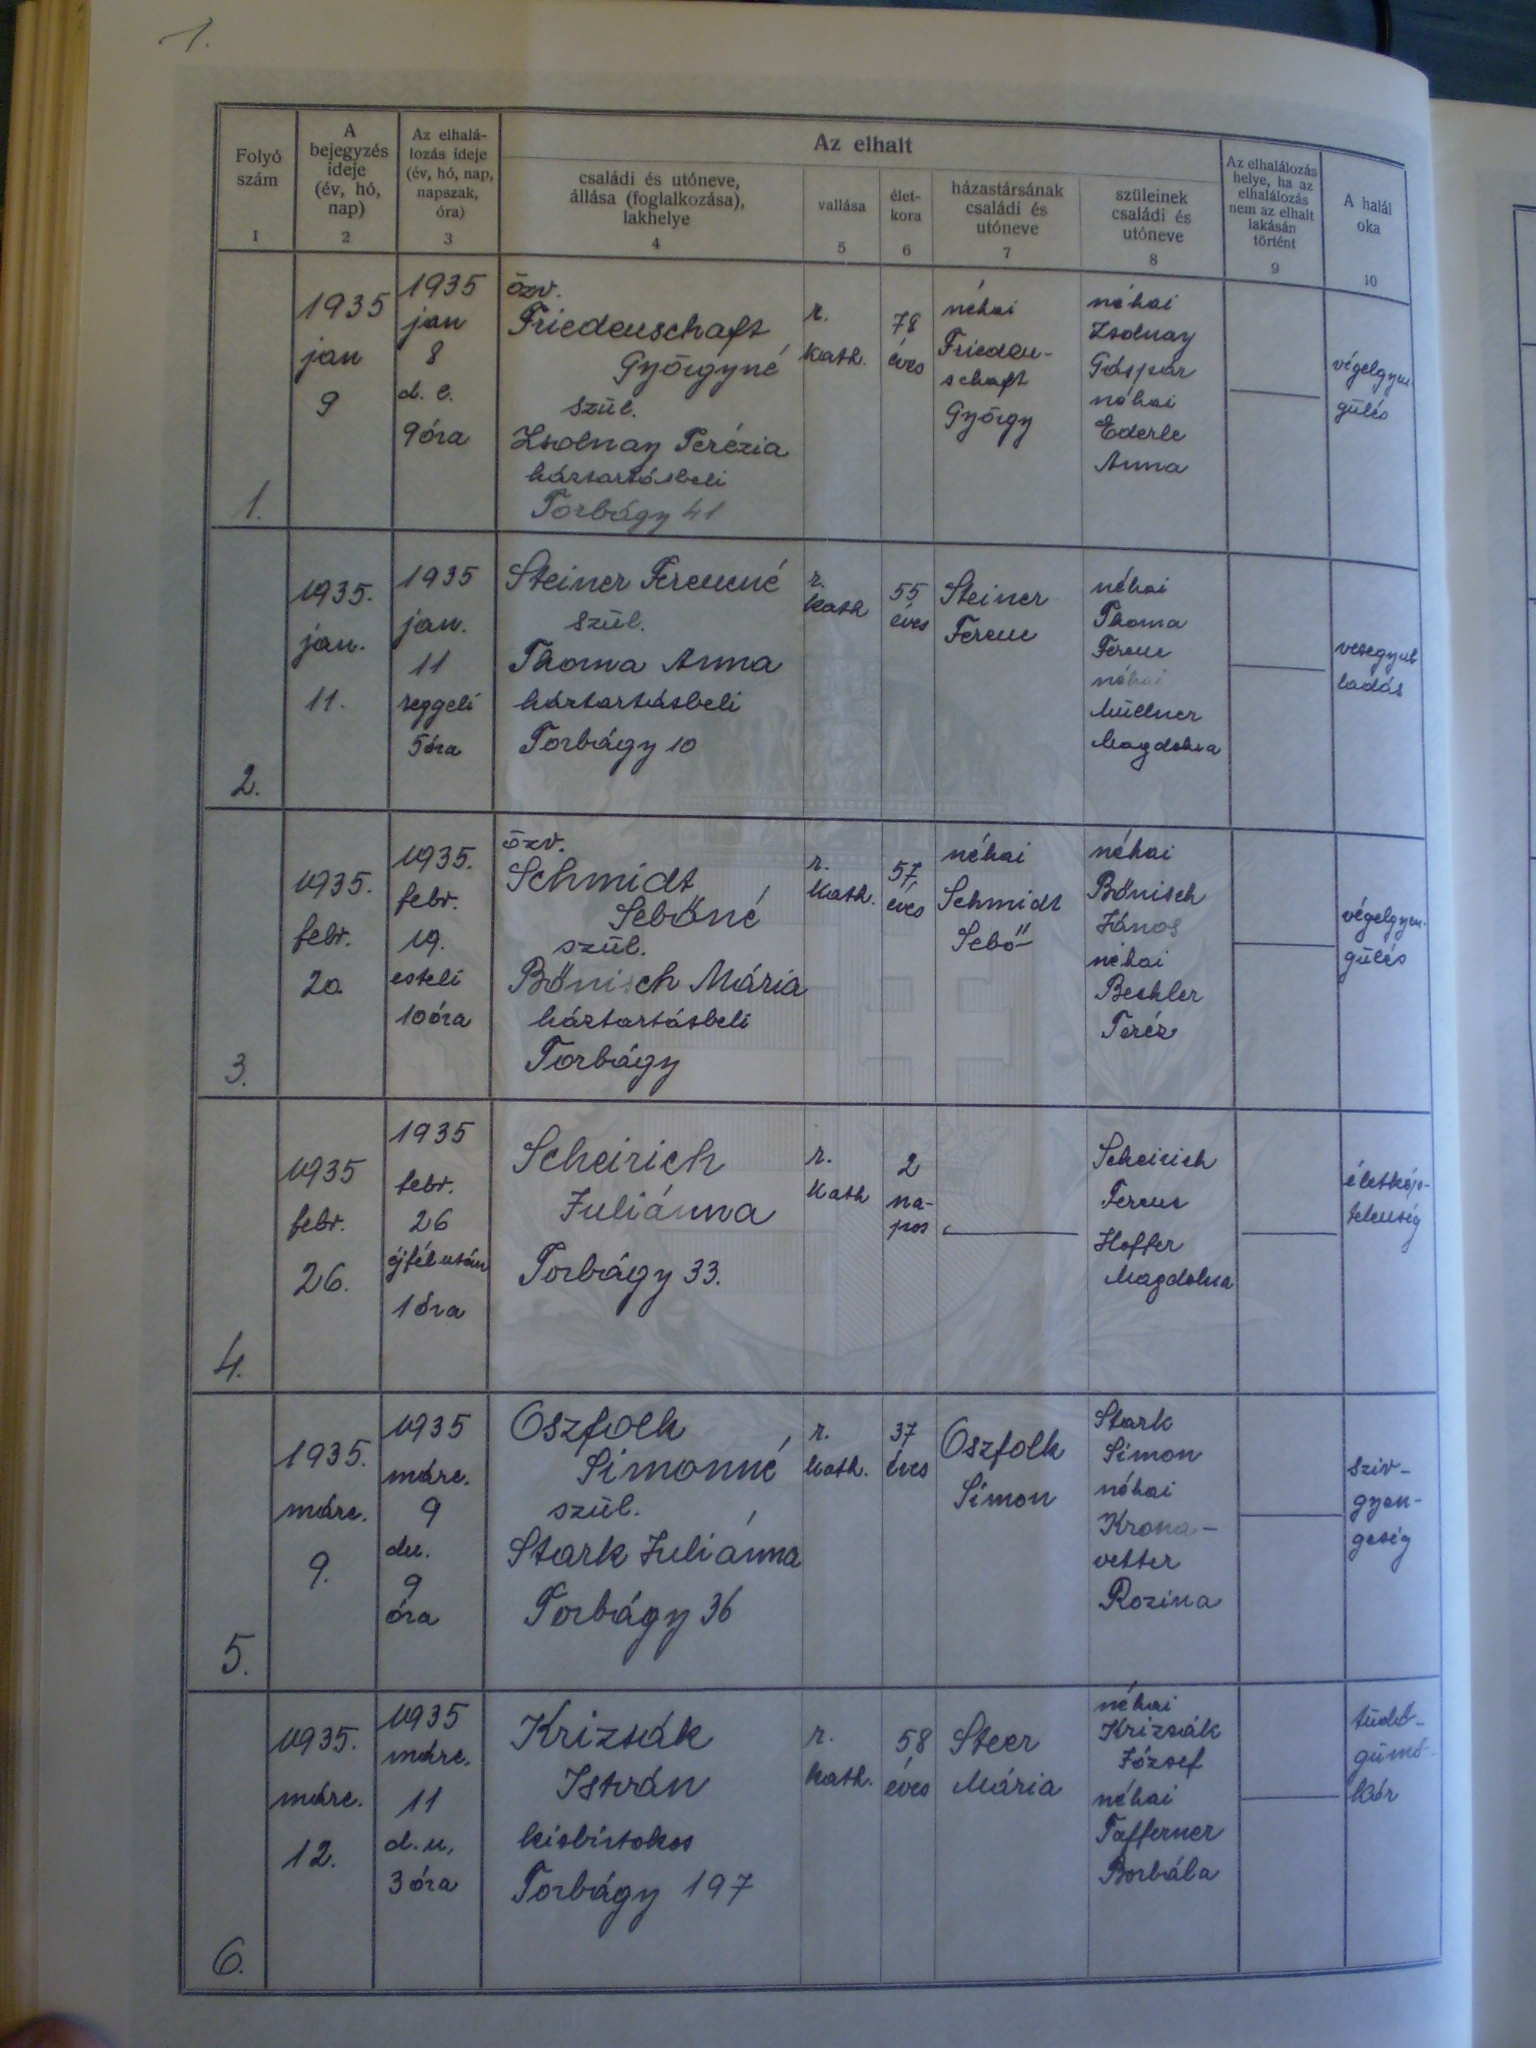 1.
Folyó
szám
1
A
bejegyzés
ideje
(év, hó,
nap)
2
Az elhalá-
lozás ideje
(év, hó, nap,
napszak,
óra)
3
Az elhalt
családi és utóneve,
állása (foglalkozása),
lakhelye
4
vallása
5
élet-
kora
6
házastársának
családi és
utóneve
7
szüleinek
családi és
utóneve
8
Az elhalálozás
helye, ha az
elhalálozás
nem az elhalt
lakásán
történt
9
A halál
oka
10
1.
1935
jan
9
1935
jan
8
d. e.
9 óra
özv.
Friedenschaft
Györgyné
szül.
Zsolnay Terézia
háztartásbeli
Torbágy 41
r.
kath.
78
éves
néhai
Frieden-
schaft
György
néhai
Zsolnay
Gáspár
néhai
Ederle
Anna
végelgyen
gülés
2.
1935.
jan.
11.
1935
jan.
11
reggeli
5 óra
Steiner Ferencné
szül.
Thoma Anna
háztartásbeli
Torbágy 10
r.
kath
55
éves
Steiner
Ferenc
néhai
Thoma
Ferenc
néhai
Müllner
Magdolna
ladás
3.
1935.
febr.
20.
1935.
febr.
19.
esteli
10 óra
özv.
Schmidt
Sebőné
szül.
Bőnisch Mária
háztartásbeli
Torbágy
r.
kath.
57
éves
néhai
Schmidt
Sebő
néhai
Bőnisch
János
néhai
Bechler
Teréz
végelgyen-
gülés
4.
1935
febr.
26.
1935
febr.
26
éjfél után
1 óra
Scheirich
Juliánna
Torbágy 33.
r.
kath
2
na-
pos
Scheirich
Ferenc
Hoffer
Magdolna
életkép-
telenség
5.
1935.
márc.
9.
1935
márc.
9
du.
9
óra
Oszfolk
Simonné
szül.
Stark Juliánna
Torbágy 36
r.
kath.
37
éves
Oszfolk
Simon
Stark
Simon
néhai
Krona-
vetter
Rozina
sziv-
gyen-
geség
6.
1935.
márc.
12.
1935
márc.
11
d. u.
3 óra
Krizsák
István
kisbirtokos
Torbágy 197
r.
kath.
58
éves
Steer
Mária
néhai
Krizsák
József
néhai
Tafferner
Borbála
tüdő-
gümő-
kór